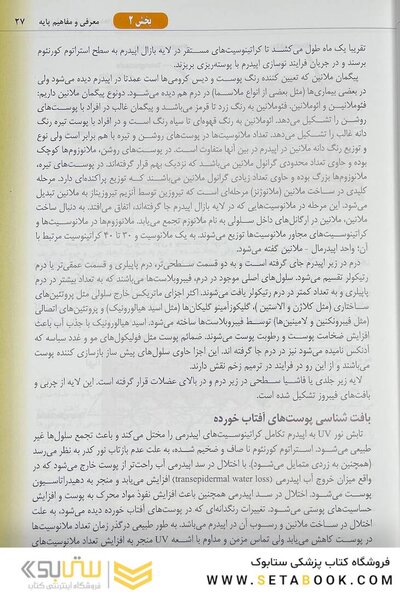 بخش ۲ معرفی و مفاهیم پایه ۲۷
تقریبا یک ماه طول می‌کشد تا کراتینوسیت‌های مستقر در لایه بازال اپیدرم به سطح استراتوم کورنئوم
برسند و در جریان فرایند نوسازی اپیدرم با پوسته‌ریزی بریزند.
پیگمان ملانین که تعیین کننده رنگ پوست و دیس کرومی‌ها است عمدتا در اپیدرم دیده می‌شود ولی
در بعضی بیماری‌ها (مثل بعضی از انواع ملاسما) در درم هم دیده می‌شود. دونوع پیگمان ملانین داریم:
فئوملانین و ائوملانین. فئوملانین به رنگ زرد تا قرمز می‌باشد و پیگمان غالب در افراد با پوست
روشن را تشکیل می‌دهد. ائوملانین به رنگ قهوه‌ای تا سیاه رنگ است و در افراد با پوست تیره رنگ
دانه غالب را تشکیل می‌دهد. تعداد ملانوسیت‌ها در پوست‌های روشن و تیره با هم برابر است ولی نوع
و توزیع رنگ دانه ملانین در بین آنها متفاوت است. در پوست‌های روشن، ملانوزوم‌ها کوچک
بوده و حاوی تعداد محدودی گرانول ملانین می‌باشند که نزدیک بهم قرار گرفته‌اند. در پوست‌های تیره،
ملانوزوم‌ها بزرگ بوده و حاوی تعداد زیادی گرانول ملانین می‌باشند که توزیع پراکنده‌ای دارد. مرحله
کلیدی در ساخت ملانین (ملانوژنز) مرحله‌ای است که تیروزین توسط آنزیم تیروزیناز به ملانین تبدیل
می‌شود. این مرحله در ملانوسیت‌هایی که در لایه بازال اپیدرم جا گرفته‌اند، اتفاق می‌افتد. به دنبال ساخت
ملانین، ملانین در ارگانل‌های داخل سلولی به نام ملانوزوم تجمع می‌یابد. ملانوزوم‌ها در ملانوسیت‌ها و
کراتینوسیت‌های مجاور ملانوسیت‌ها توزیع می‌شوند. به یک ملانوسیت و ۳۰ تا ۴۰ کراتینوسیت مرتبط با
آن: واحد اپیدرمال - ملانین گفته می‌شود.
درم در زیر اپیدرم جای گرفته است و به دو قسمت سطحی‌تر، درم پاپیلری و قسمت عمقی‌تر یا درم
رتیکولر تقسیم می‌شود. سلول‌های اصلی موجود در درم، فیبروبلاست‌ها می‌باشند که به تعداد بیشتر در درم
پاپیلری و به تعداد کمتر در درم رتیکولر یافت می‌شوند. اکثر اجزای ماتریکس خارج سلولی مثل پروتئین‌های
ساختاری (مثل کلاژن و الاستین)، گلیکوزآمینو گلیکان‌ها (مثل اسید هیالورونیک) و پروتئین‌های اتصالی
(مثل فیبرونکتین و لامینین‌ها) توسط فیبروبلاست‌ها ساخته می‌شوند. اسید هیالورونیک با جذب آب باعث
افزایش ضخامت پوست و رطوبت پوست می‌شوند. ضمائم پوست مثل فولیکول‌های مو و غدد سباسه که
آدنکس نامیده می‌شود نیز در درم جا گرفته اند. این اجزا حاوی سلول‌های پیش ساز بازسازی کننده پوست
می‌باشند و از این رو در فرایند در ترمیم زخم نقش دارند.
لایه زیر جلدی یا فاشیا سطحی در زیر درم و در بالای عضلات قرار گرفته است. این لایه از چربی و
بافت‌های فیبروز تشکیل شده است.
بافت شناسی پوست‌های آفتاب خورده
تابش نور UV به اپیدرم تکامل کراتینوسیت‌های اپیدرمی را مختل می‌کند و باعث تجمع سلول‌ها غیر
طبیعی می‌شود. استراتوم کورنئوم نا صاف و ضخیم شده، به علت عدم بازتاب نور کدر به نظر می‌رسد
(همچنین به زردی متمایل می‌شود). با اختلال در سد اپیدرمی آب راحت‌تر از پوست خارج می‌شود که در
واقع میزان خروج آب اپیدرمی (transepidermal water loss) افزایش می‌یابد و منجر به دهیدراتاسیون
پوست می‌شود. اختلال در سد اپیدرمی همچنین باعث افزایش نفوذ مواد محرک به پوست و افزایش
حساسیت‌های پوستی می‌شود. تغییرات رنگدانه‌ای که در پوست‌های آفتاب خورده دیده می‌شود، به علت
اختلال در ساخت ملانین و رسوب آن در اپیدرم می‌باشد. به طور طبیعی در گذر زمان تعداد ملانوسیت‌ها
در پوست کاهش می‌یابد ولی تماس مزمن و مداوم با اشعه UV منجر به افزایش تعداد ملانوسیت‌ها
ستابوک
فروشگاه اینترنتی کتاب
فروشگاه کتاب پزشکی ستابوک
WWW.SETABOOK.COM